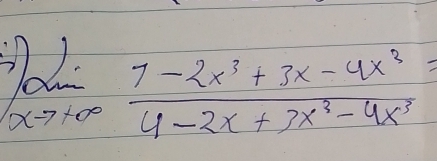 lim 7 - 2x³ + 3x - 4x³ =
x→+∞ 4 - 2x + 3x³ - 4x³